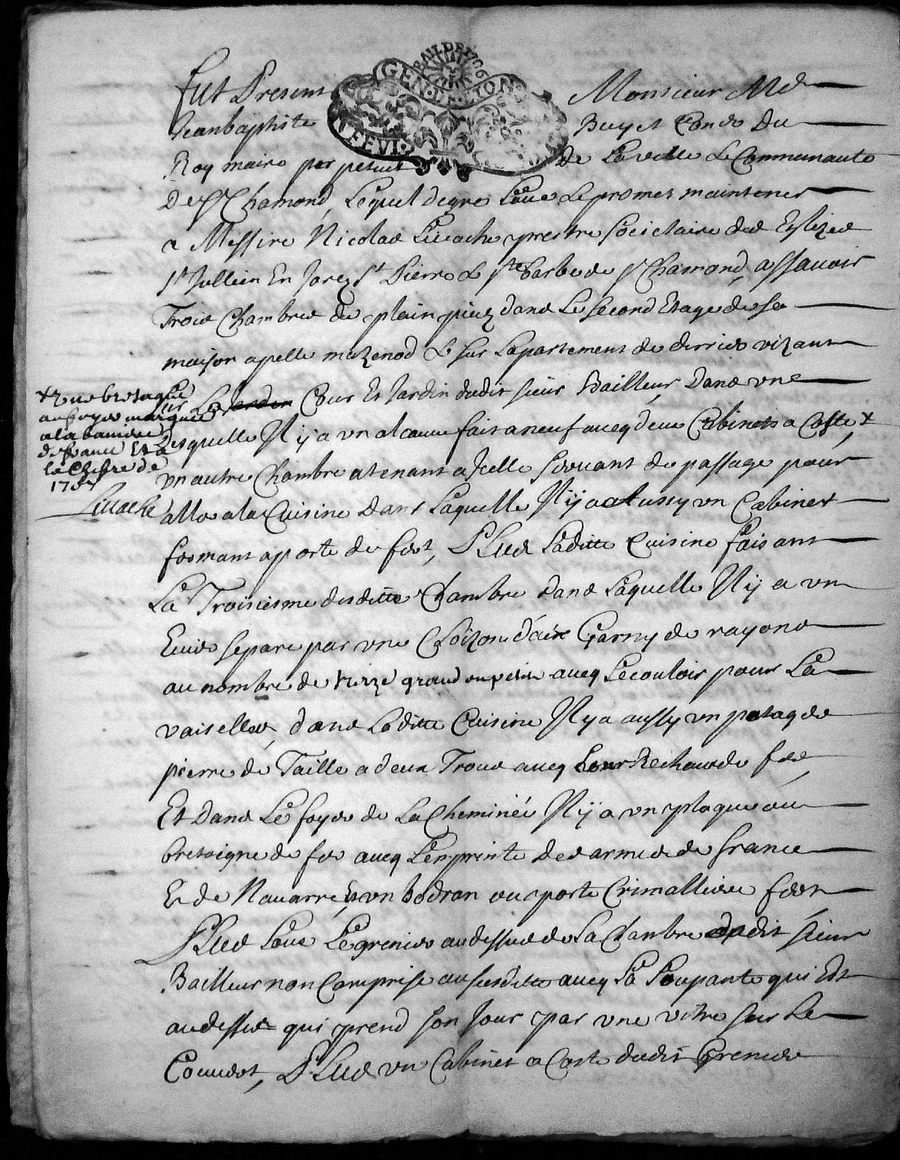 BAIL DE 1706
GEN. DE LYON
Fut Present Monsieur Me
Jean baptiste Buyet Con.er du
Roy maire perpetuel de la ville & Communauté
de St Chamond, Lequel de gre Loue & promet maintenir
a Messire Nicolas Livache prestre Societaire des Eglizes
St Jullien En Jarez St Pierre & Ste Barbe de St Chamond, assavoir
Trois Chambres de plain pied dans Le Second Etage de sa
maison apelle mazenod & sur Lapartement de derrier vizant
sur La Cour Et Jardin dudit sieur Bailleur, dans une
desquelle Il y a un alcauve fait a neuf avecq deux Cabinets a Costé, +
un autre Chambre atenant a Icelle servant de passage pour
aller a la Cuisine dans Laquelle Il y a Aussy un Cabinet
fermant a porte de fert, Plus Laditte Cuisine faisant
La Troisiesme desditte Chambre dans Laquelle Il y a un
Evier separe par une Cloizon d'aix Garny de rayons
au nombre de treize grand ou petit avecq Lecouloir pour La
vaiselles, dans Laditte Cuisine Il y a aussy un potag de
pierre de Taille a deux Trous avecq Leur Rechaux de fer
Et dans Le foyer de La Cheminée Il y a un plaque ou
bretaigne de fer avecq L'emprinte des armes de france
Et de Navarre, Et un bodran ou porte Crimalliere fert
Plus Loue Le grenier au dessus de La Chambre dudit sieur
Bailleur non Comprise au susditte avecq La Soupante qui Est
au dessus qui prend son Jour par une vitre sur Le
Couvert, Plus un Cabinet a Costé dudit Grenier
+ & une bretagne
au foyer marquée
a la baniere
de france Et a
la Chifre de
Livache